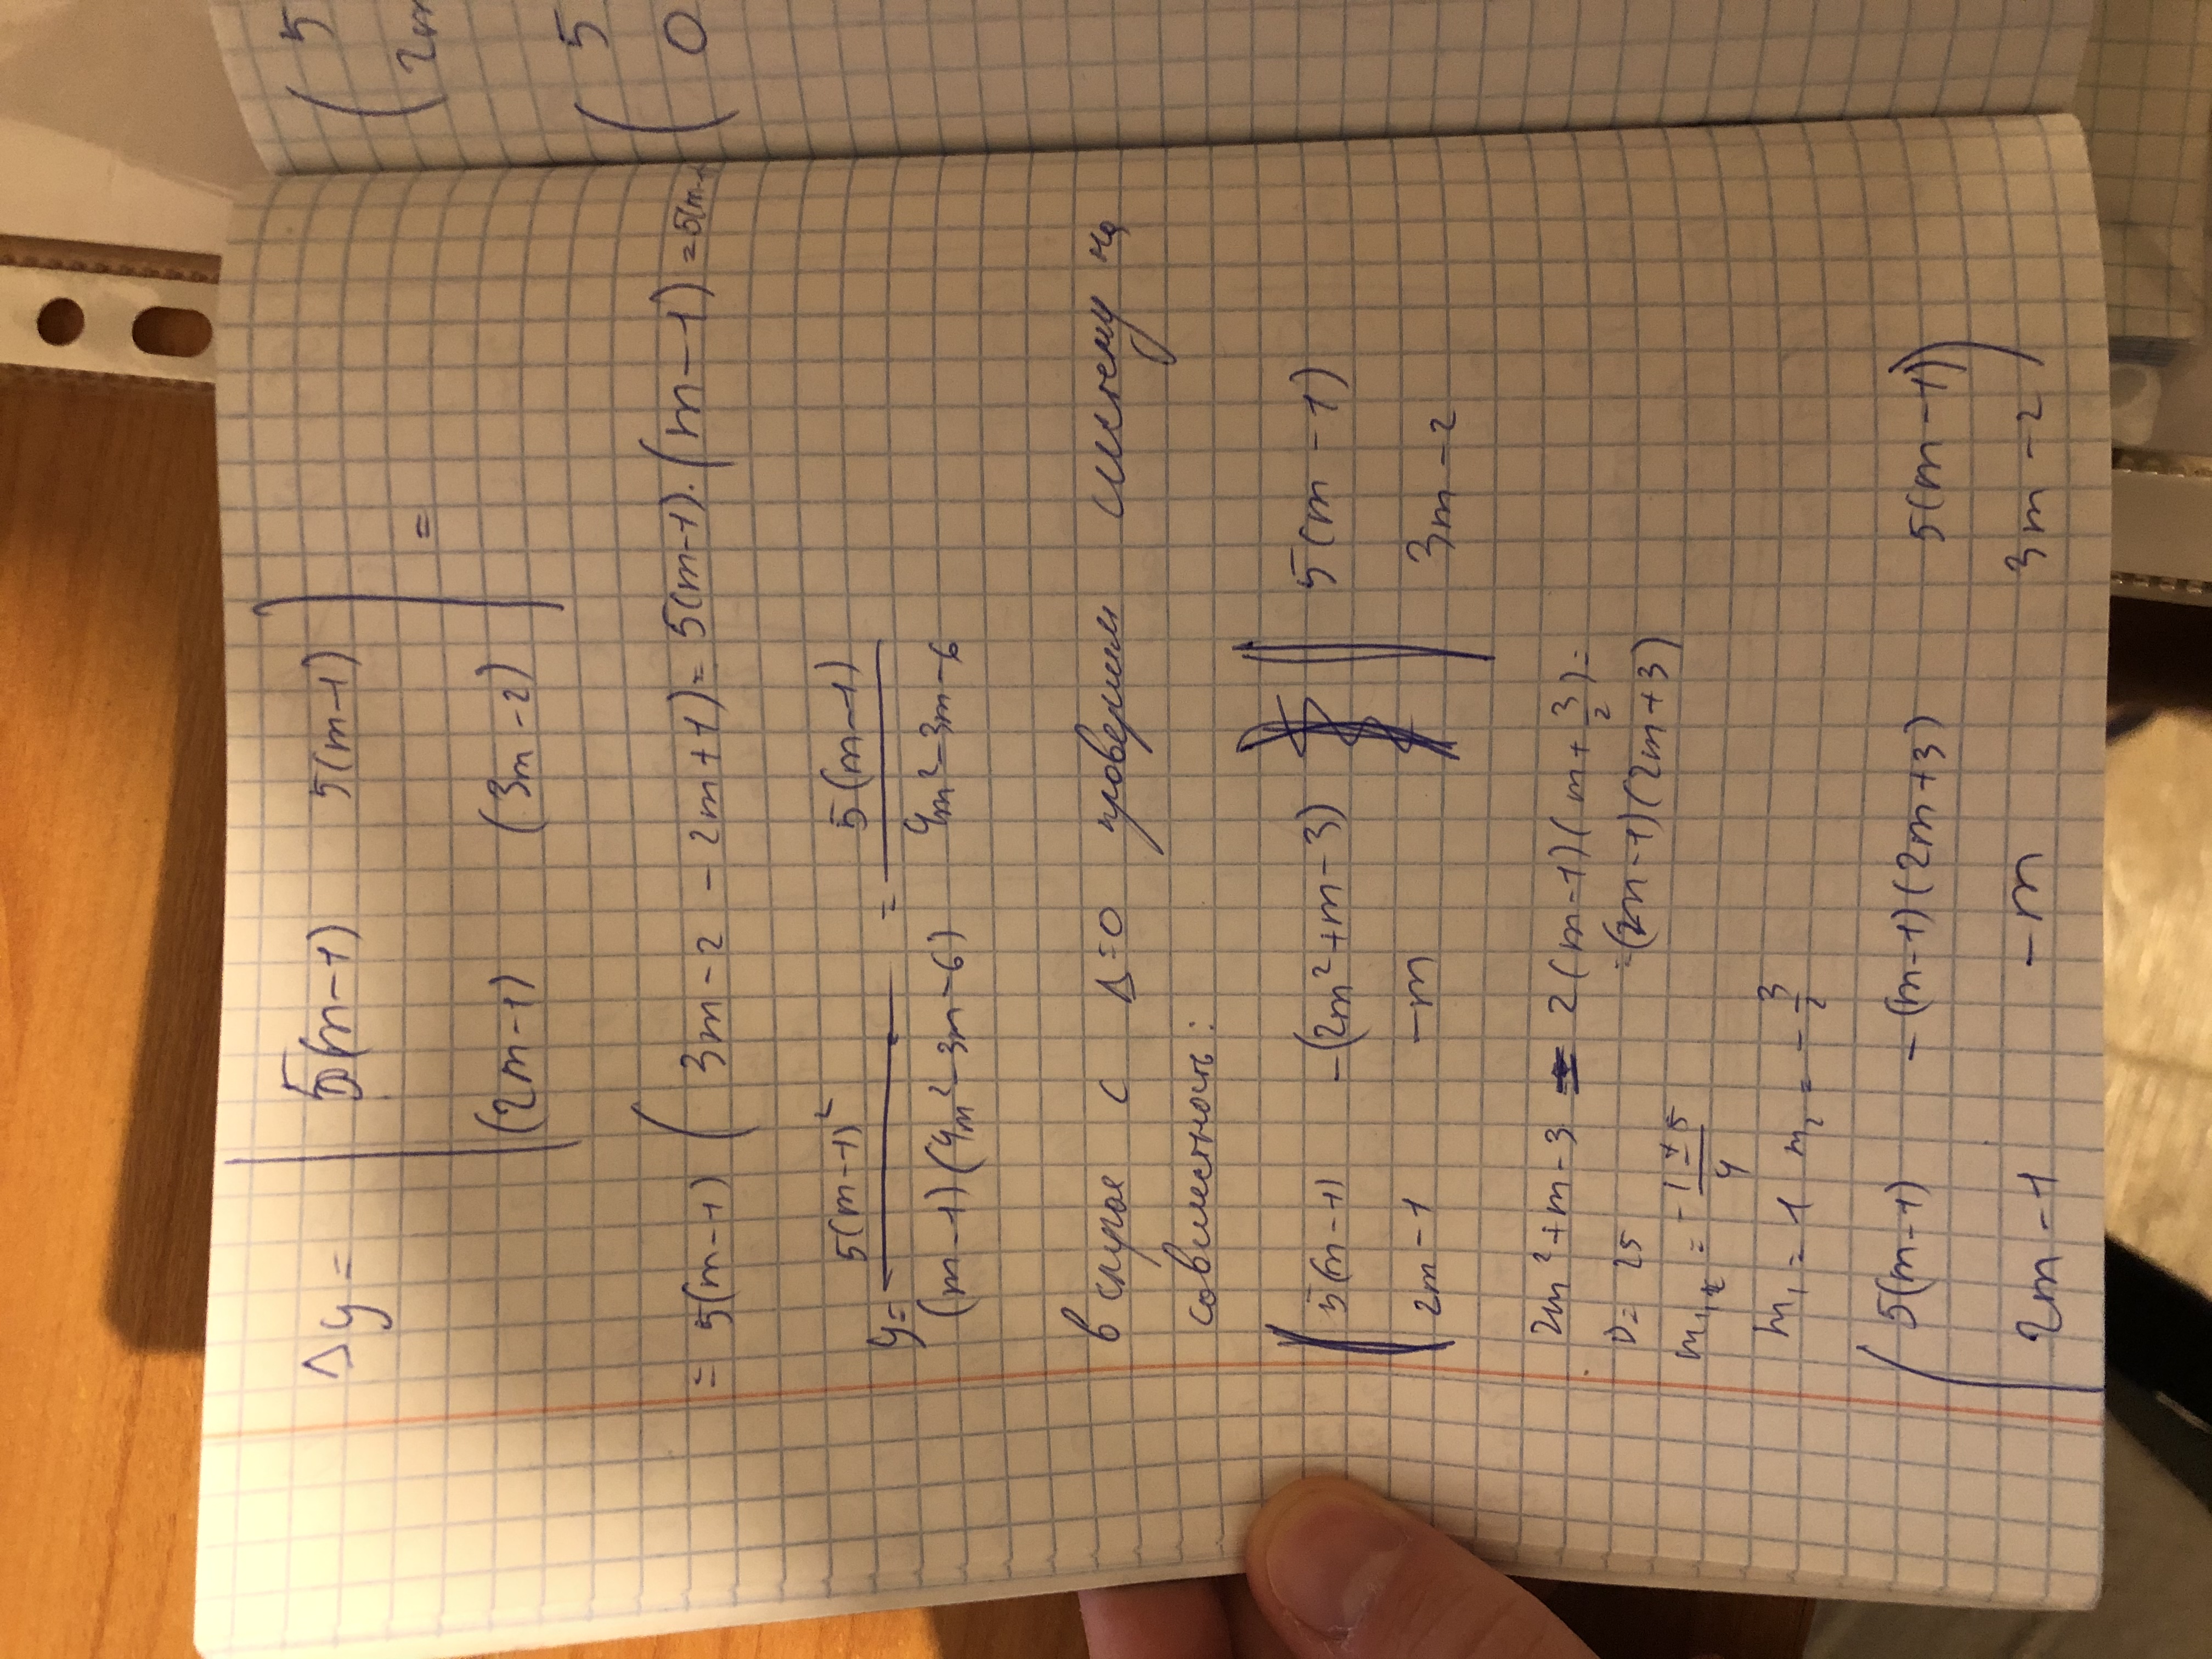 Δy = | 5(m-1) 5(m-1) |
=
(2m-1) (3m-2)
= 5(m-1) ( 3m-2 - 2m+1) = 5(m-1)·(m-1) = 5(m-1
y = 5(m-1)² / (m-1)(4m²-3m-6) = 5(m-1) / 4m²-3m-6
в случае с Δ=0 проверим систему на
совместность:
5(m-1) -(2m²+m-3) | 5(m-1)
2m-1 -m | 3m-2
2m²+m-3 = 2(m-1)(m+3/2) =
D= 25 =(2m-1)(2m+3)
m₁,₂ = -1±5 / 4
m₁ = 1 m₂ = -3/2
( 5(m-1) -(m-1)(2m+3) 5(m-1) )
2m-1 -m 3m-2
( 5
2m
( 5
0